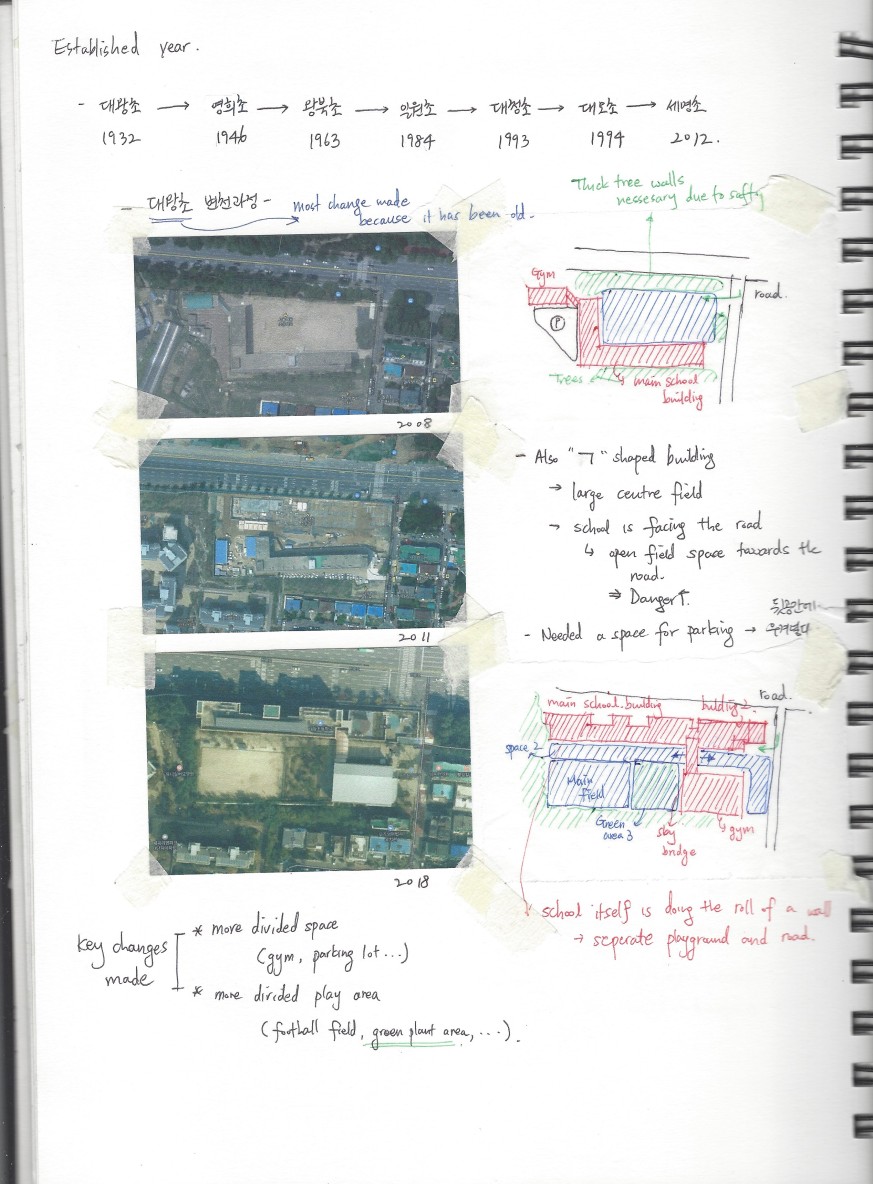 Established year.
- 대왕초 → 영희초 → 왕북초 → 일원초 → 대청초 → 대모초 → 세명초
1932 1946 1963 1984 1993 1994 2012.
- 대왕초 변천과정 -
most change made
because it has been old.
2008
2011
2018
Thick tree walls
nessesary due to safty
Gym
road.
P
Trees
main school
building
- Also "ㄱ" shaped building
→ large centre field
→ school is facing the road
↳ open field space towards the
road.
⇒ Danger↑.
- Needed a space for parking →
main school building
building 2
road.
space 2
Main
field
Green
area 3
sky
bridge
gym
school itself is doing the roll of a wall
→ seperate playground and road.
Key changes
made
* more divided space
(gym, parking lot...)
* more divided play area
(football field, green plant area, ...).